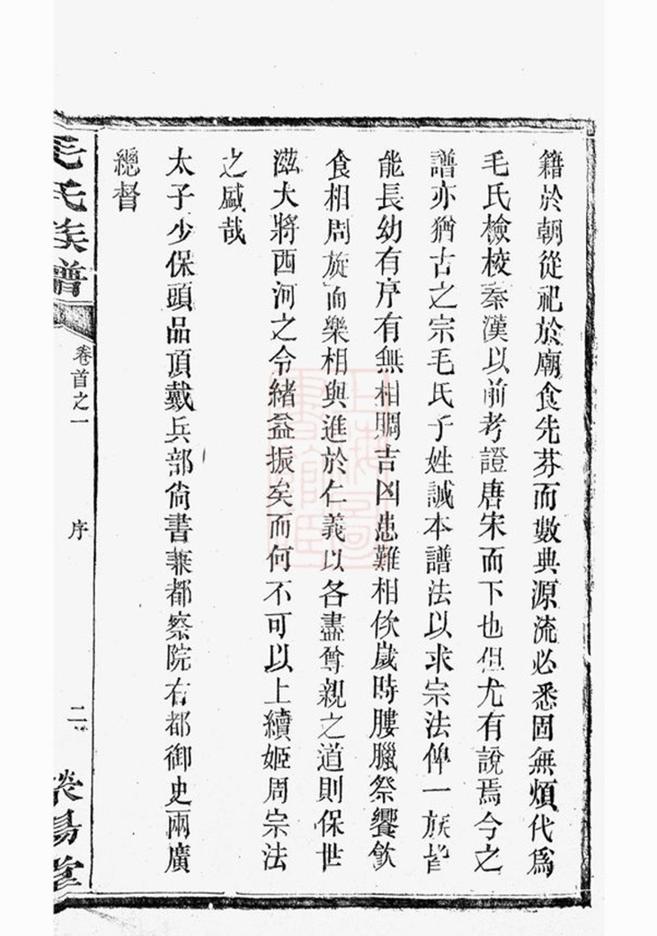 籍於朝從祀於廟食先芬而數典源流必悉固無煩代為
毛氏檢校秦漢以前考證唐宋而下也但尤有說焉今之
譜亦猶古之宗毛氏子姓誠本譜法以求宗法俾一族皆
能長幼有序有無相賙吉凶患難相佽歲時膢臘祭饗飲
食相周旋而樂相與進於仁義以各盡尊親之道則保世
滋大將西河之令緒益振矣而何不可以上續姬周宗法
之盛哉
太子少保頭品頂戴兵部尚書兼都察院右都御史兩廣
總督
毛氏族譜
卷首之一
序
二
滎陽堂